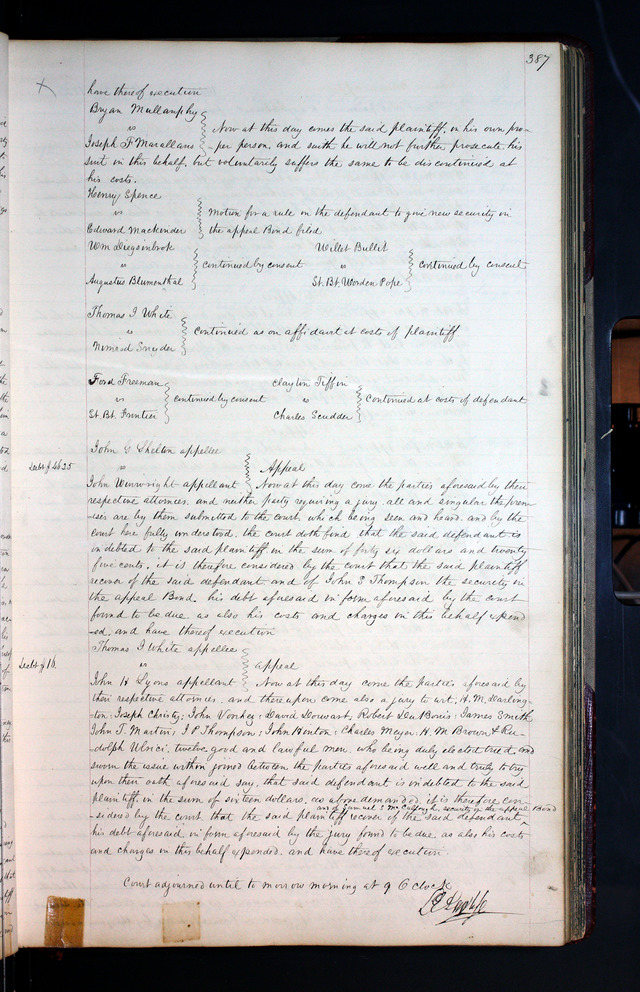 387
have thereof execution
Bryan Mullanphy
vs
Joseph F Marallans
Now at this day comes the said plaintiff, in his own pro-
per person, and saith he will not further prosecute his
suit in this behalf, but voluntarily suffers the same to be discontinued at
his costs.
Henry Spence
vs
Edward Mackinder
Motion for a rule on the defendant to give new security in
the appeal Bond filed
Wm
vs
Augustus Blumenthal
continued by consent
Willet Bullit
vs
St. Bt. Worden Pope
continued by consent
Thomas J White
vs
Nimrod Snyder
continued as on affidavit at costs of plaintiff
Ford Freeman
vs
St. Bt. Frontier
continued by consent
Clayton Tiffin
vs
Charles Scudder
Continued at costs of defendant
John G Shelton appellee
Debt $46.25
vs
Appeal
John Winwright appellant
Now at this day come the parties aforesaid by their
respective attornies, and neither party requiring a jury, all and singular the prem
ises are by them submitted to the court, which being seen and heard, and by the
court here fully understood, the court doth find that the said defendant is
indebted to the said plaintiff in the sum of forty six dollars and twenty
five cents, it is therefore considered by the court that the said plaintiff
recover of the said defendant and of John Thompson the security in
the appeal Bond, his debt aforesaid in form aforesaid by the court
found to be due, as also his costs and charges in this behalf expend
ed, and have thereof execution
Thomas J White appellee
Debt $16.
vs
appeal
John H Lyons appellant
Now at this day come the parties aforesaid by
their respective attornies, and thereupon come also a jury to wit; H. M. Darling-
ton; Joseph Christy; John Vorhey; David Dorwart, Robert; James Smith
John T. Martin; J P Thompson; John Henton; Charles Meyer; H. M Brown & Ru-
dolph Ulrici; twelve good and lawful men, who being duly elected tried, and
sworn the issue within joined between the parties aforesaid well and truly to try
upon their oath aforesaid say, that said defendant is indebted to the said
plaintiff in the sum of sixteen dollars, as above demanded, it is therefore con-
and of Samuel S security in the appeal Bond
-sidered by the court that the said plaintiff recover of the said defendant
his debt aforesaid in form aforesaid by the jury found to be due, as also his costs
and charges in this behalf expended, and have thereof execution
Court adjourned until to morrow morning at 9 O clock